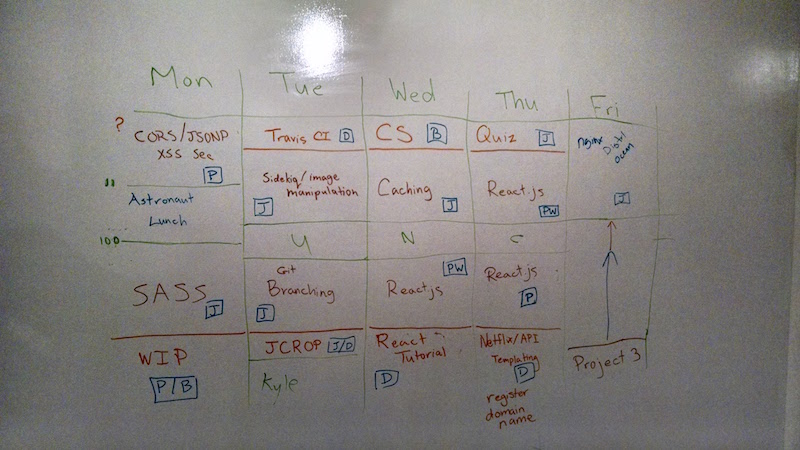 Mon Tue Wed Thu Fri
?
CORS/JSONP
XSS Sec
P
Travis CI D
CS B
Quiz J
nginx
Digital
Ocean
J
11
Astronaut
Lunch
Sidekiq/image
manipulation
J
Caching
J
React.js
PW
100
U N C
SASS
J
Git
Branching
J
PW
React.js
React.js
P
WIP
P/B
JCROP J/D
Kyle
React
Tutorial
D
Netflix/API
Templating
D
register
domain
name
Project 3